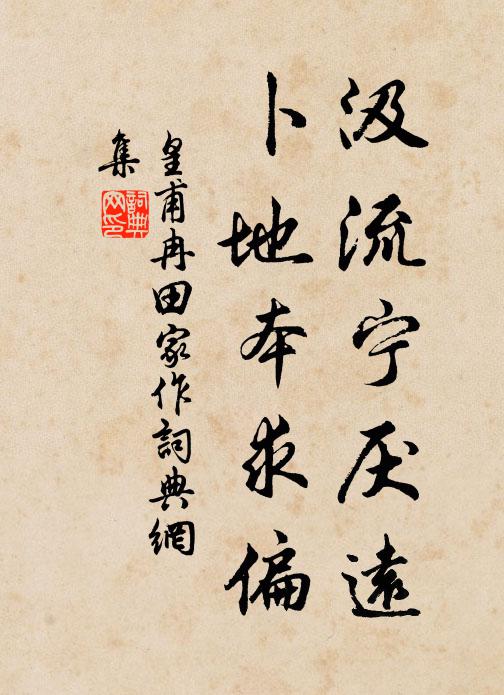 汲流宁厌远
卜地本求偏
皇甫冉田家作詞典網
集
詞典
网印